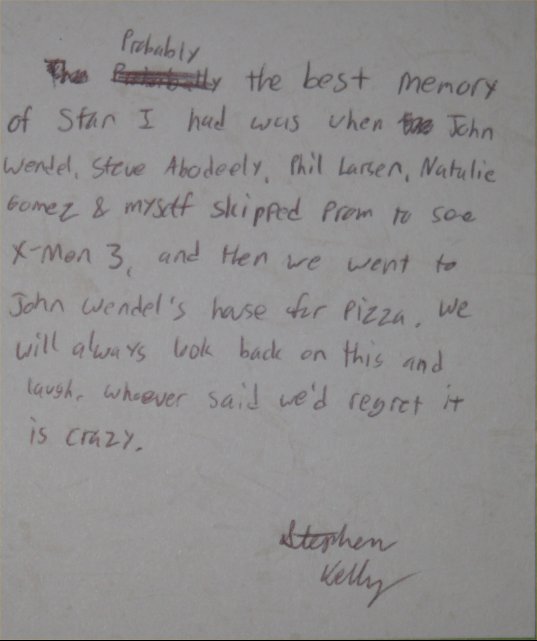 Probably
The Probably the best memory
of Stan I had was when John
Wendel, Steve Abodeely, Phil Larsen, Natalie
Gomez & myself skipped Prom to see
X-Men 3, and then we went to
John Wendel's house for Pizza. We
will always look back on this and
laugh. whoever said we'd regret it
is crazy.
Stephen
Kelly